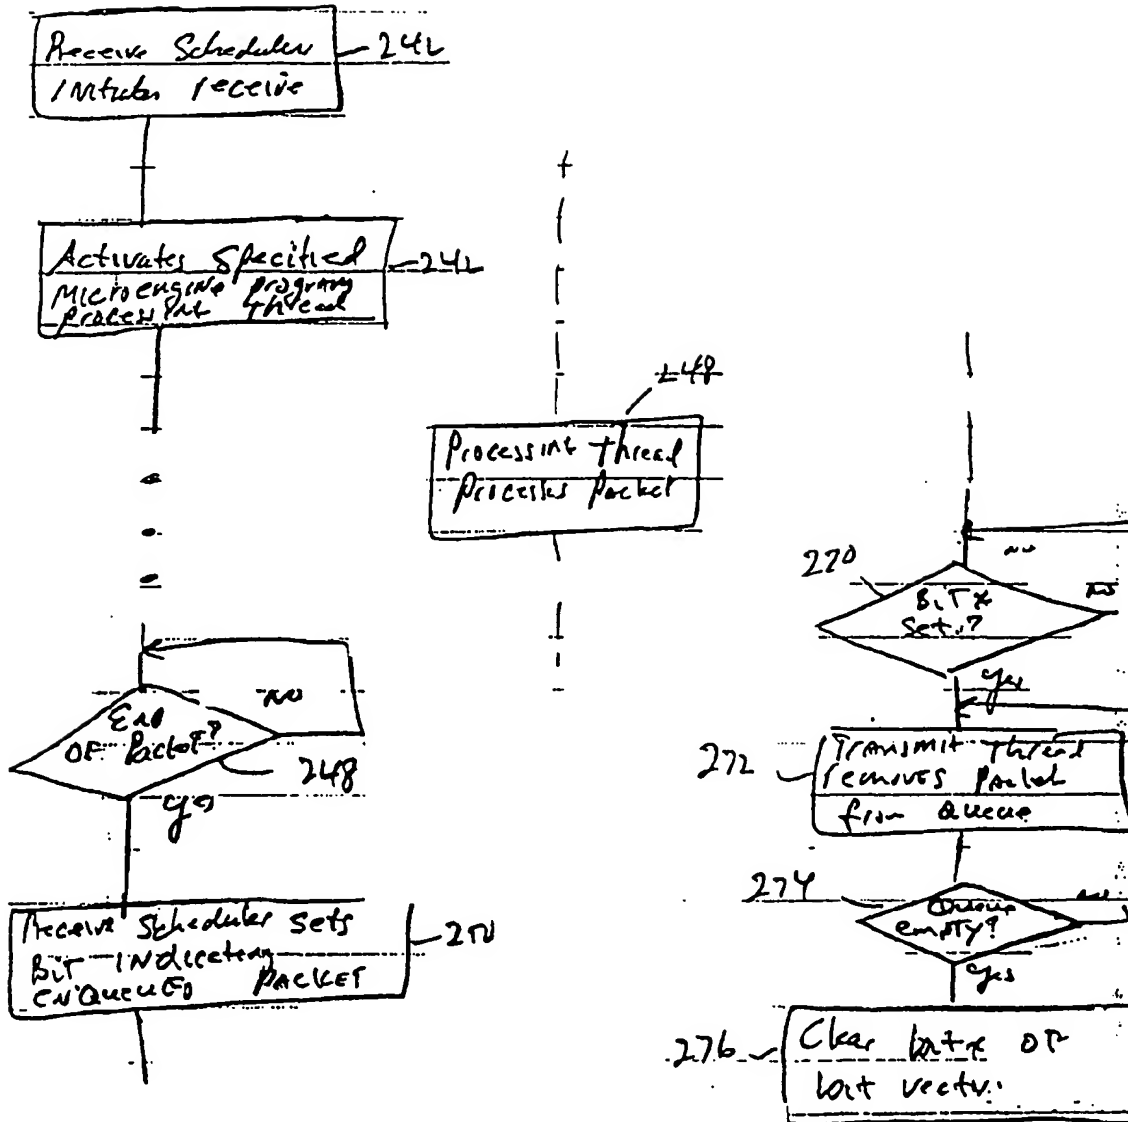 Receive Scheduler
Initiates receive
242
Activates Specified
Microengine program
processing thread
242
248
Processing thread
Processes Packet
End
OF Packet?
NO
248
yes
Receive Scheduler Sets
BIT INdicating
ENQUEUED PACKET
250
270
NO
BIT x
Set?
NO
yes
272
Transmit Thread
removes Packet
from Queue
274
Queue
empty?
NO
yes
276
Clear bit x OF
bit vector